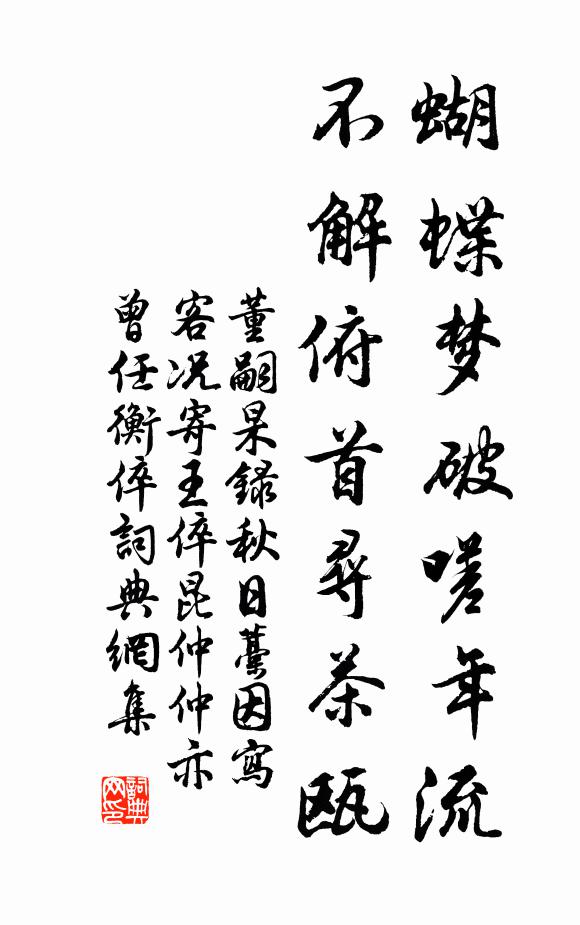 蝴蝶梦破嗟年流
不解俯首尋茶甌
董嗣杲録秋日藳因寫
客况寄王倅昆仲仲亦
曾任衡倅詞典網集
詞典网印